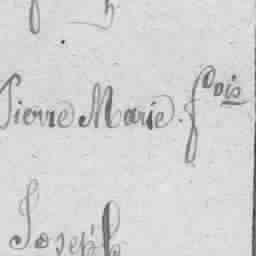 Pierre Marie. fcois
Joseph